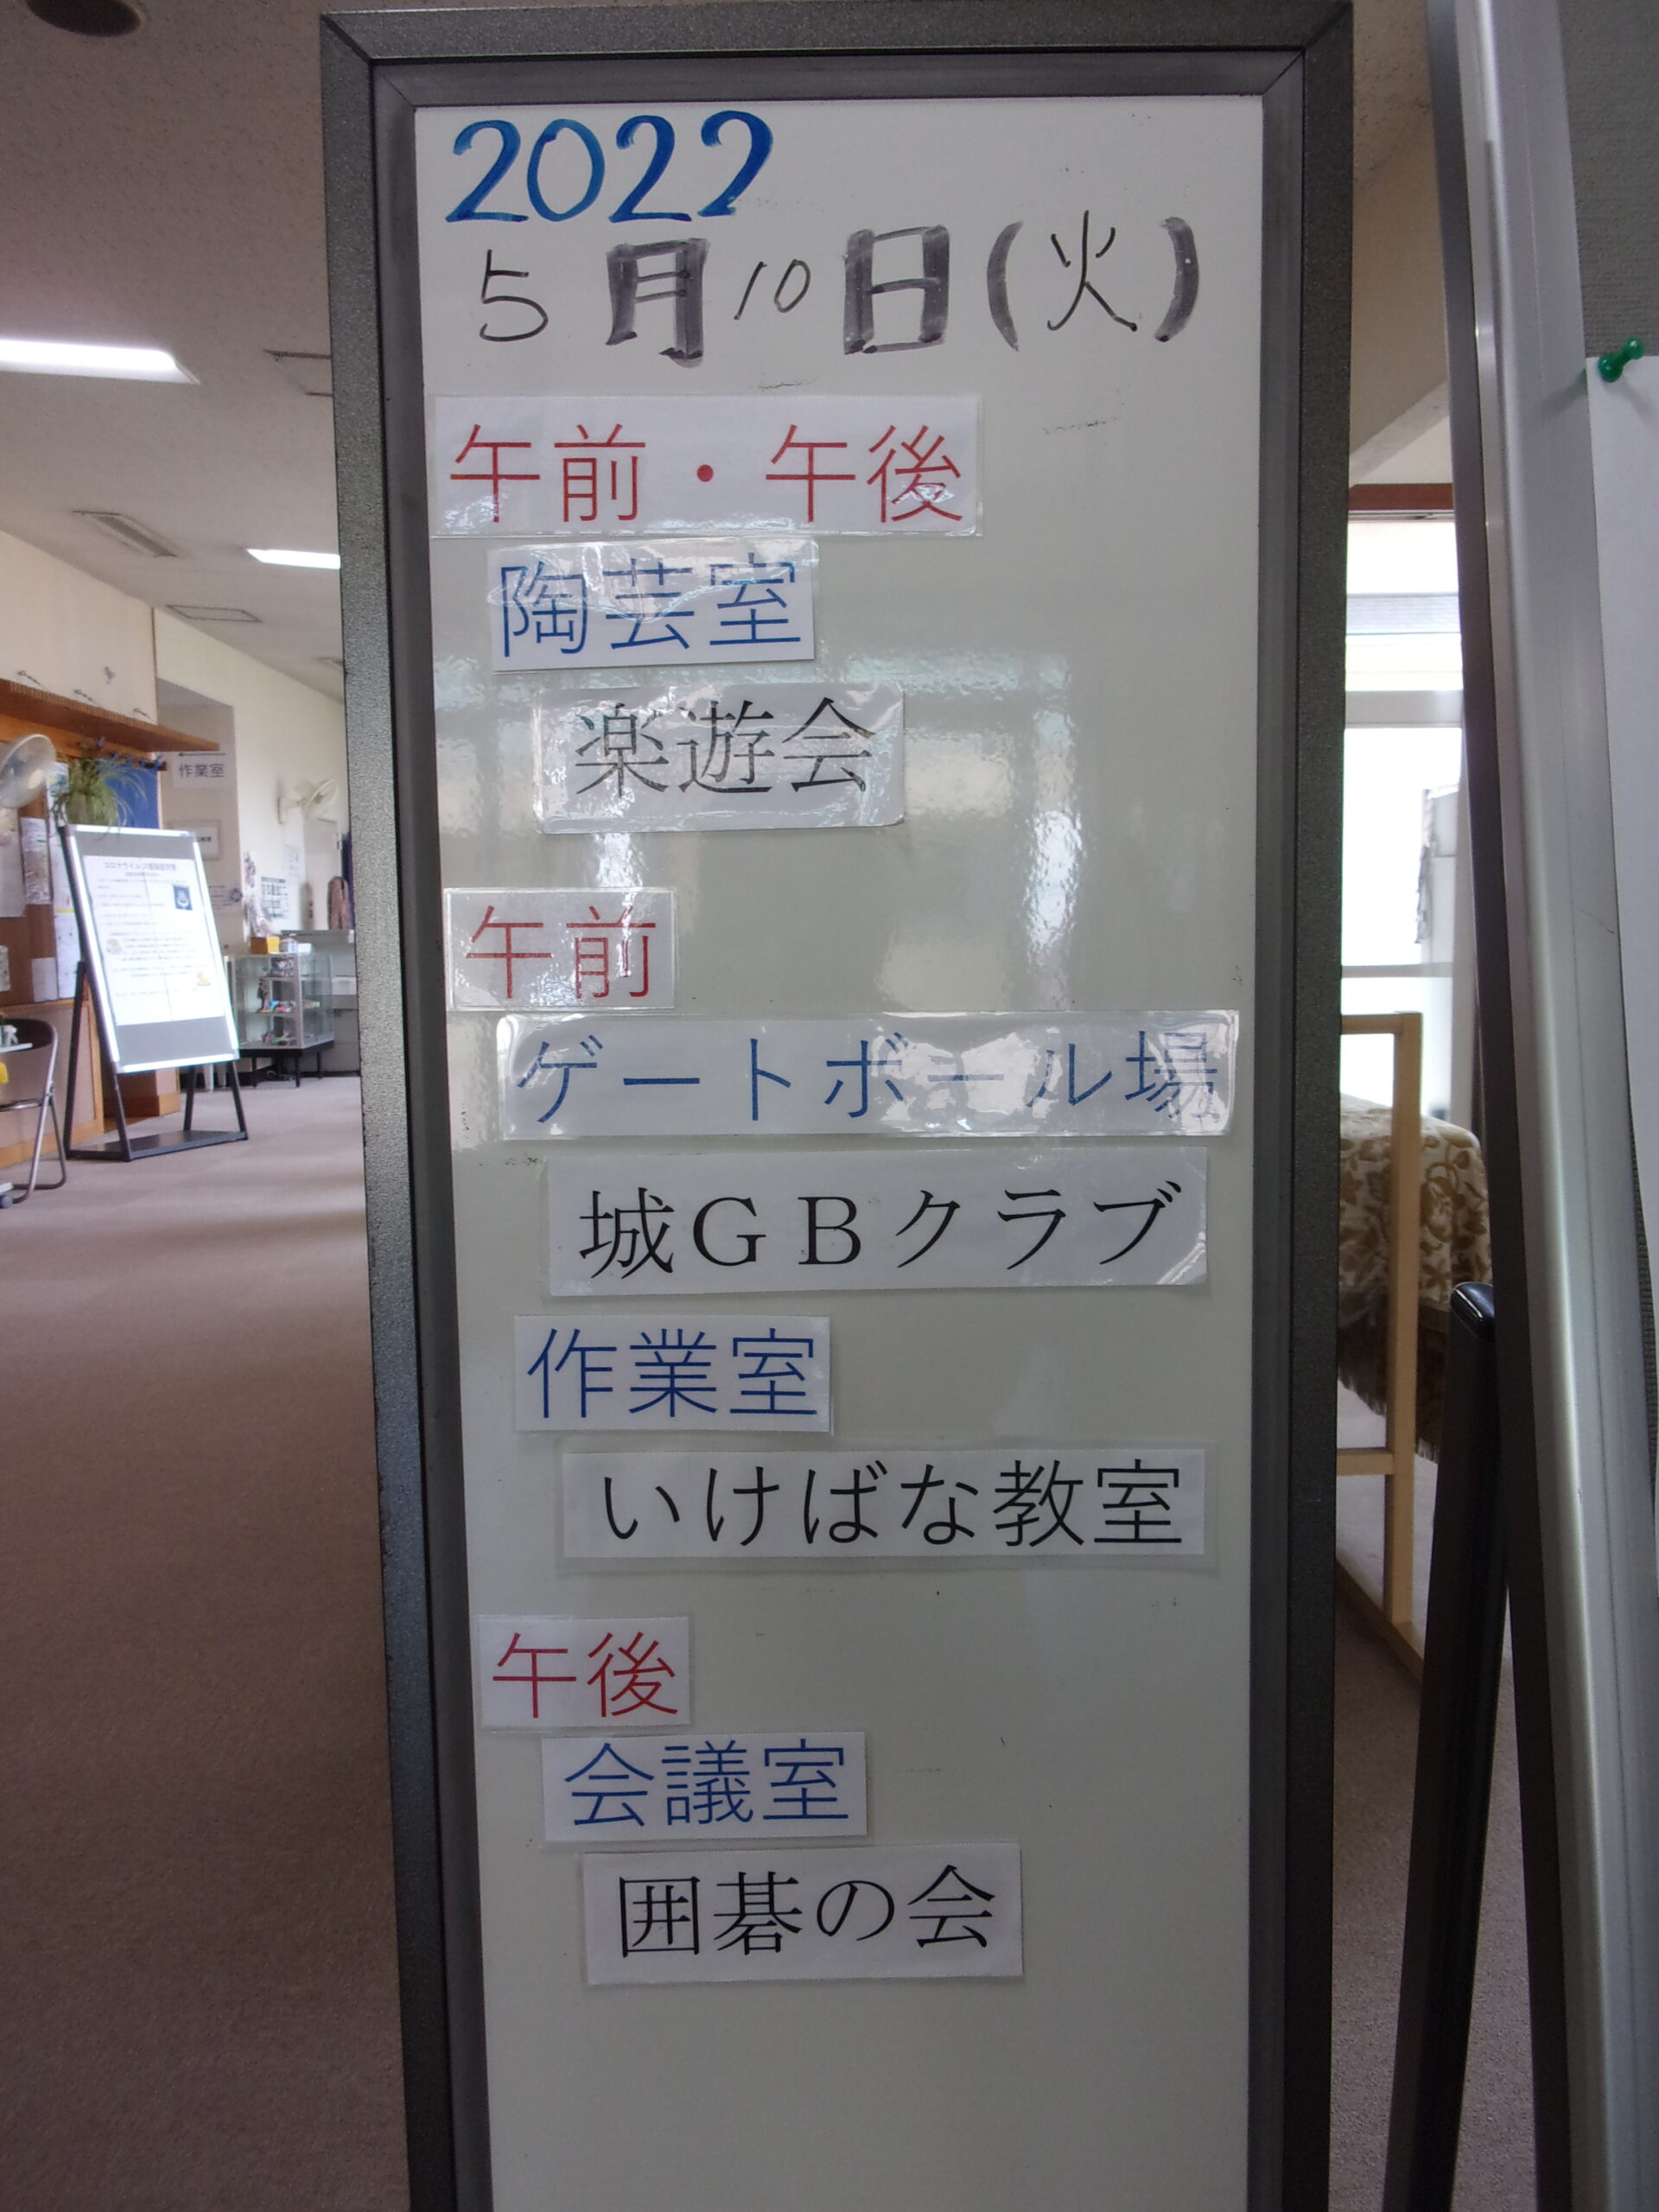 2022
5月10日(火)
午前・午後
陶芸室
楽遊会
午前
ゲートボール場
城GBクラブ
作業室
いけばな教室
午後
会議室
囲碁の会
作業室